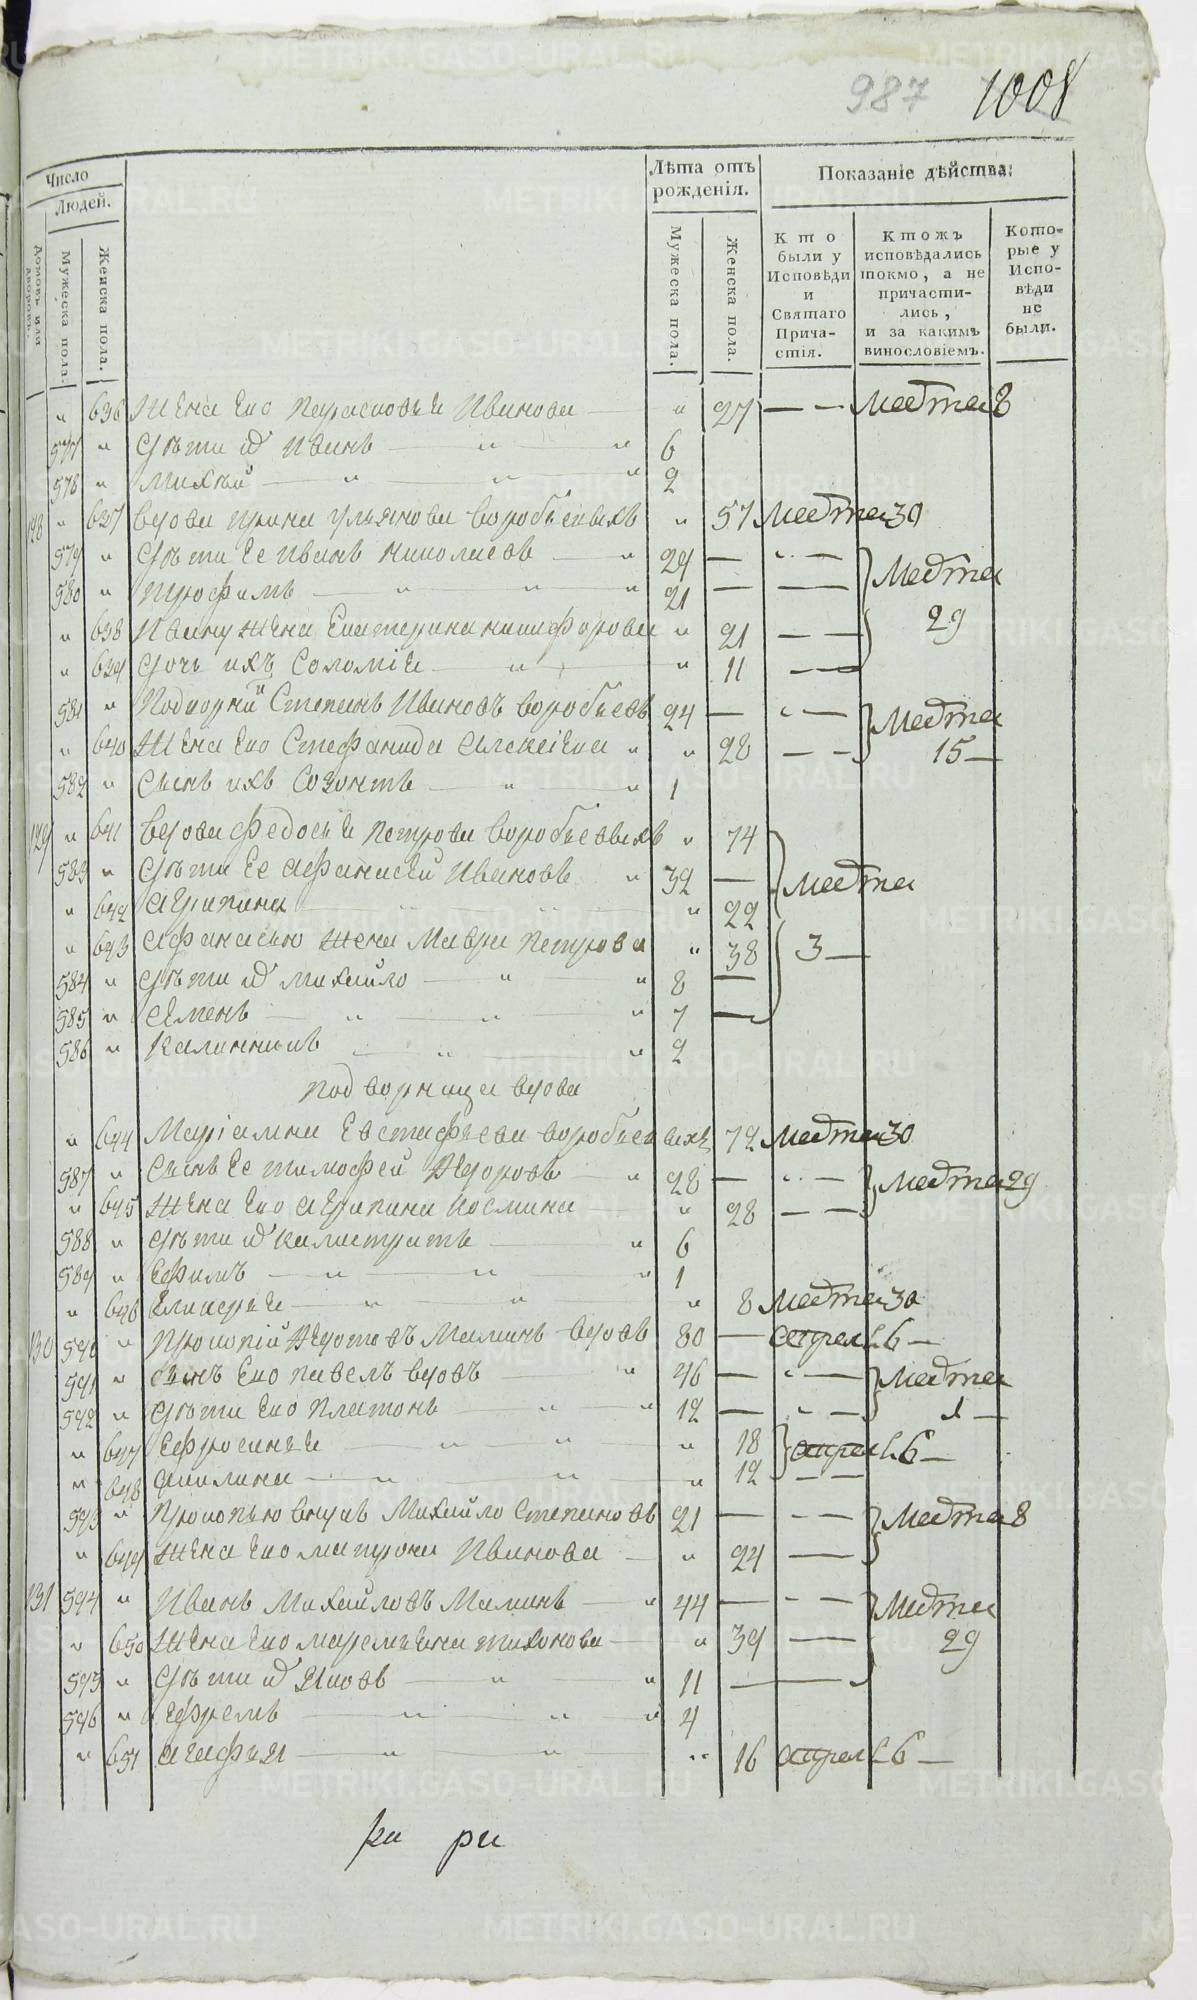 987 1008
Число
Людей.
Домовъ или дворовъ.
Мужеска пола.
Женска пола.
Лѣта отъ рожденія.
Мужеска пола.
Женска пола.
Показаніе дѣйства:
Кто были у Исповѣди и Святаго Прича-стія.
Ктожъ исповѣдались токмо, а не причасти-лись, и за какимъ винословіемъ.
Кото-рые у Испо-вѣди не были.
" 636 Жена Его Парасковья Иванова " 27 — — Марта 8
577 " Дѣти их Иванъ " " 6
578 " Михей " " " 2
128 " 637 вдова Ирина Ульянова Воробьевыхъ " 57 Марта 30
579 " Дѣти Ее Иванъ Николаевъ " 29 — " — Марта
580 " Трофимъ " " " 21 — — —
" 638 Ивану жена Екатерина Никифорова " 21 — — 29
" 639 Дочь ихъ Соломія " " 11 — —
581 " Подворникъ Степанъ Ивановъ Воробьевъ 24 — " — Марта
" 640 Жена Его Стефанида Алексіева " " 28 — — 15 —
582 " Сынъ ихъ Созонтъ " " 1
129 " 641 вдова Федосья Петрова Воробьевыхъ " 74
583 " Дѣти Ее Афанасей Ивановъ " 39 — Марта
" 642 Агрипина " 22
" 643 Афанасью жена Мавра Петрова " 38 3 —
584 " Дѣти их Михайло " " 8 —
585 " Семенъ " " " 7 —
586 " Калинникъ " " 2
Подворница вдова
" 644 Маріамна Евстафьева Воробьевыхъ 72 Марта 30
587 " Сынъ Ее Тимофей Федоровъ " 28 — " — Марта 29
" 645 Жена Его Агрипина Космина " 28 — —
588 " Дѣти их Калистратъ " 6
589 " Ефимъ " " " 1
" 646 Гликерья " " " 8 Марта 30
130 590 " Прокопій Федотовъ Маминъ вдовъ 80 — Апреля 6 —
591 " сынъ Его Павелъ вдовъ " 46 — " — Марта
592 " Дѣти Его Платонъ " " 12 — " — 1 —
" 647 Ефросинья " " " 18 Апреля 6 —
" 648 Акилина " " " 12 — —
593 " Прокопью внукъ Михайло Степановъ 21 — — — Марта 8
" 649 Жена Его Матрона Иванова " 24 — —
131 594 " Иванъ Михайловъ Маминъ " 44 — — — Марта
" 650 Жена Его Маремьяна Тихонова " 39 — — 29
595 " Дѣти их Яковъ " " 11 — —
596 " Ефремъ " " " 4
" 651 Агафья " " " 16 Апреля 6 —